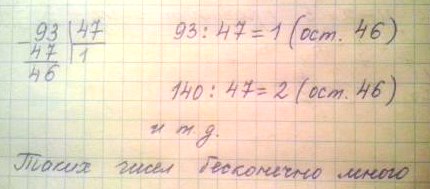 93 | 47
- 47 | 1
46
93 : 47 = 1 (ост. 46)
140 : 47 = 2 (ост. 46)
и т д.
Таких чисел бесконечно много